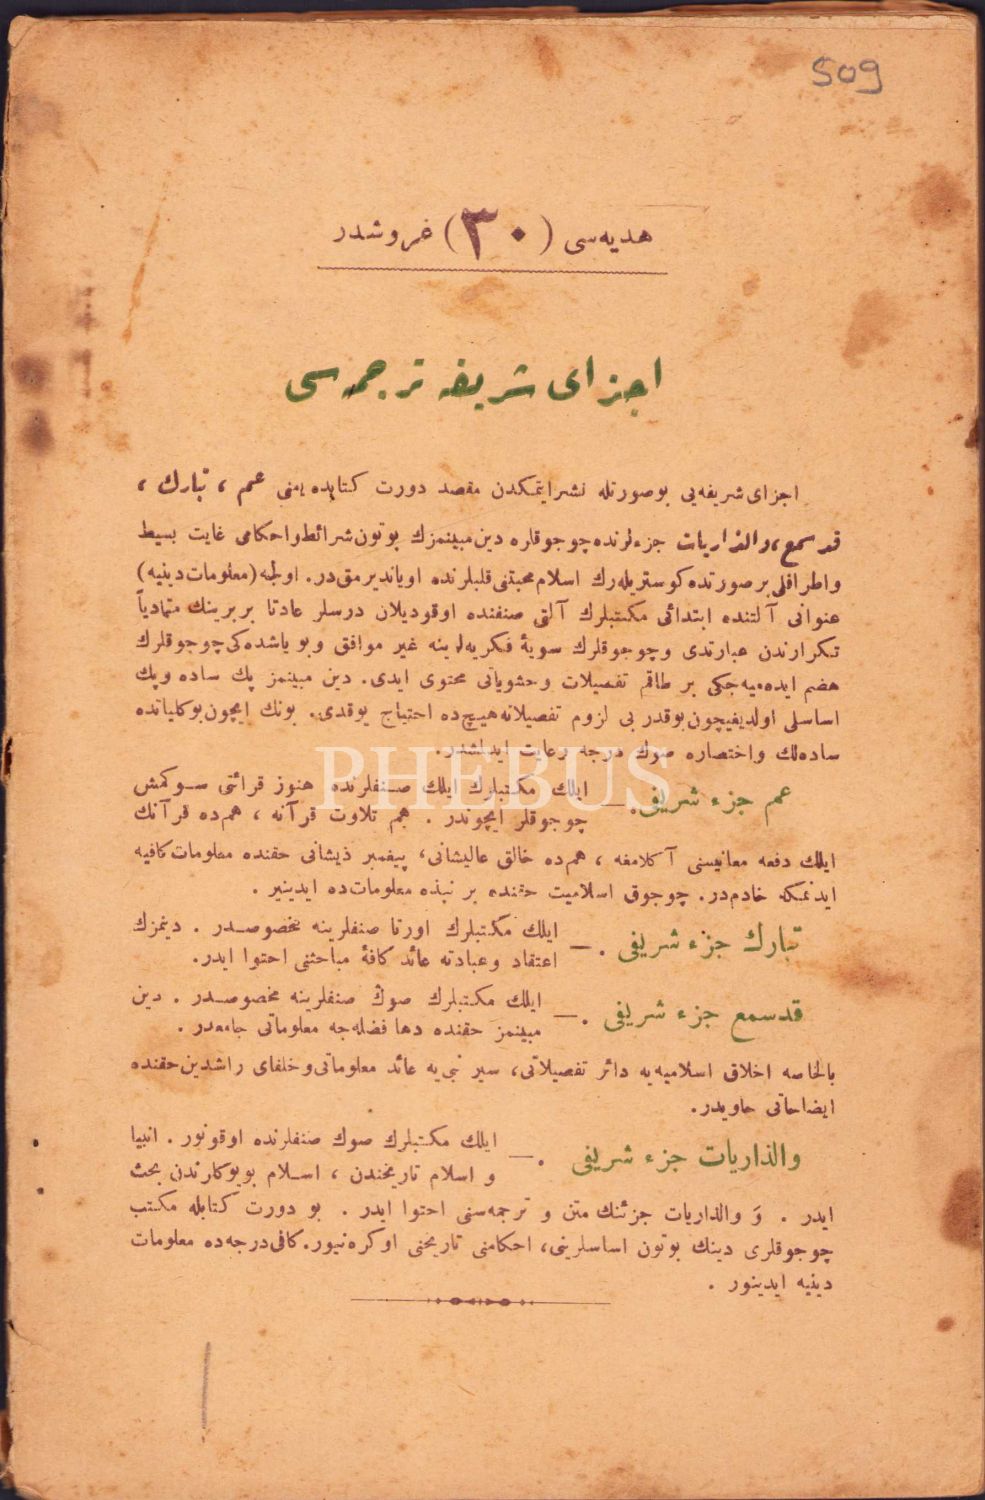 509
هديه‌سی (٣٠) غروشدر
اجزای شريفه ترجمه‌سی
اجزای شريفه‌یی بوصورتله نشر ايتمكدن مقصد دورت كتابده يعنی عم ، تبارك ،
قد سمع ، والذاريات جزءلرنده چوجوقلره دين مبينمزك بوتون شرائط واحكامی غايت بسيط
و اطرافلی برصورتده كوستريله‌رك اسلام محبتنی قلبلرنده اوياندير مقدر. اولجه (معلومات دينيه)
عنوانی آلتنده ابتدائی مكتبلرك آلتی صنفنده اوقوديلان درسلر عادتا بربرينك متمادياً
تكرارندن عبارتدی وچوجوقلرك سويهٔ فكريه‌لرينه غير موافق وبو ياشده‌كی چوجوقلرك
هضم ايده‌ميه‌جكی بر طاقم تفصيلات وحشوياتی محتوی ايدی. دين مبينمز پك ساده وپك
اساسلی اولديغيچون بوقدر بی لزوم تفصيلاته هيچ ده احتياج يوقدی. بونك ايچون بوكلياتده
ساده‌لك واختصاره صوك درجه رعايت ايدلمشدر.
PHEBUS
عم جزء شريفی . — ايلك مكتبلرك ايلك صنفلرنده هنوز قرائتی سوكمش
چوجوقلر ايچوندر . هم تلاوت قرآنه ، هم‌ده قرآنك
ايلك دفعه معانيسنی آكلامغه ، هم‌ده خالق عاليشانی، پيغمبر ذيشانی حقنده معلومات كافيه
ايدنمكه خادم‌در. چوجوق اسلاميت حقنده بر نبذه معلومات‌ده ايدينير .
تبارك جزء شريفی . — ايلك مكتبلرك اورتا صنفلرينه مخصوصدر . دينمزك
اعتقاد وعبادته عائد كافهٔ مباحثنی احتوا ايدر.
قدسمع جزء شريفی . — ايلك مكتبلرك صوڭ صنفلرينه مخصوصدر . دين
مبينمز حقنده دها فضله‌جه معلوماتی جامعدر .
بالخاصه اخلاق اسلاميه‌يه دائر تفصيلاتی، سير نبی‌يه عائد معلوماتی وخلفای راشدين حقنده
ايضاحاتی حاويدر.
والذاريات جزء شريفی . — ايلك مكتبلرك صوك صنفلرنده اوقونور . انبيا
و اسلام تاريخندن ، اسلام بويوكلرندن بحث
ايدر . وَ والذاريات جزئنك متن و ترجمه‌سنی احتوا ايدر . بو دورت كتابله مكتب
چوجوقلری دينك بوتون اساسلرينی، احكامنی تاريخنی اوكره‌نيور. كافی درجه‌ده معلومات
دينيه ايدينور .